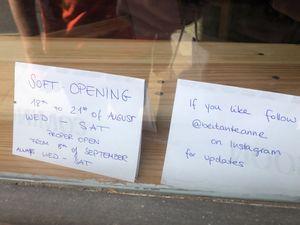 SOFT OPENING
18th to 21st of AUGUST
WED - SAT
PROPER OPEN
FROM 8th of SEPTEMBER
ALWAYS WED - SAT
If you like follow
@beitanteanne
on Instagram
for updates